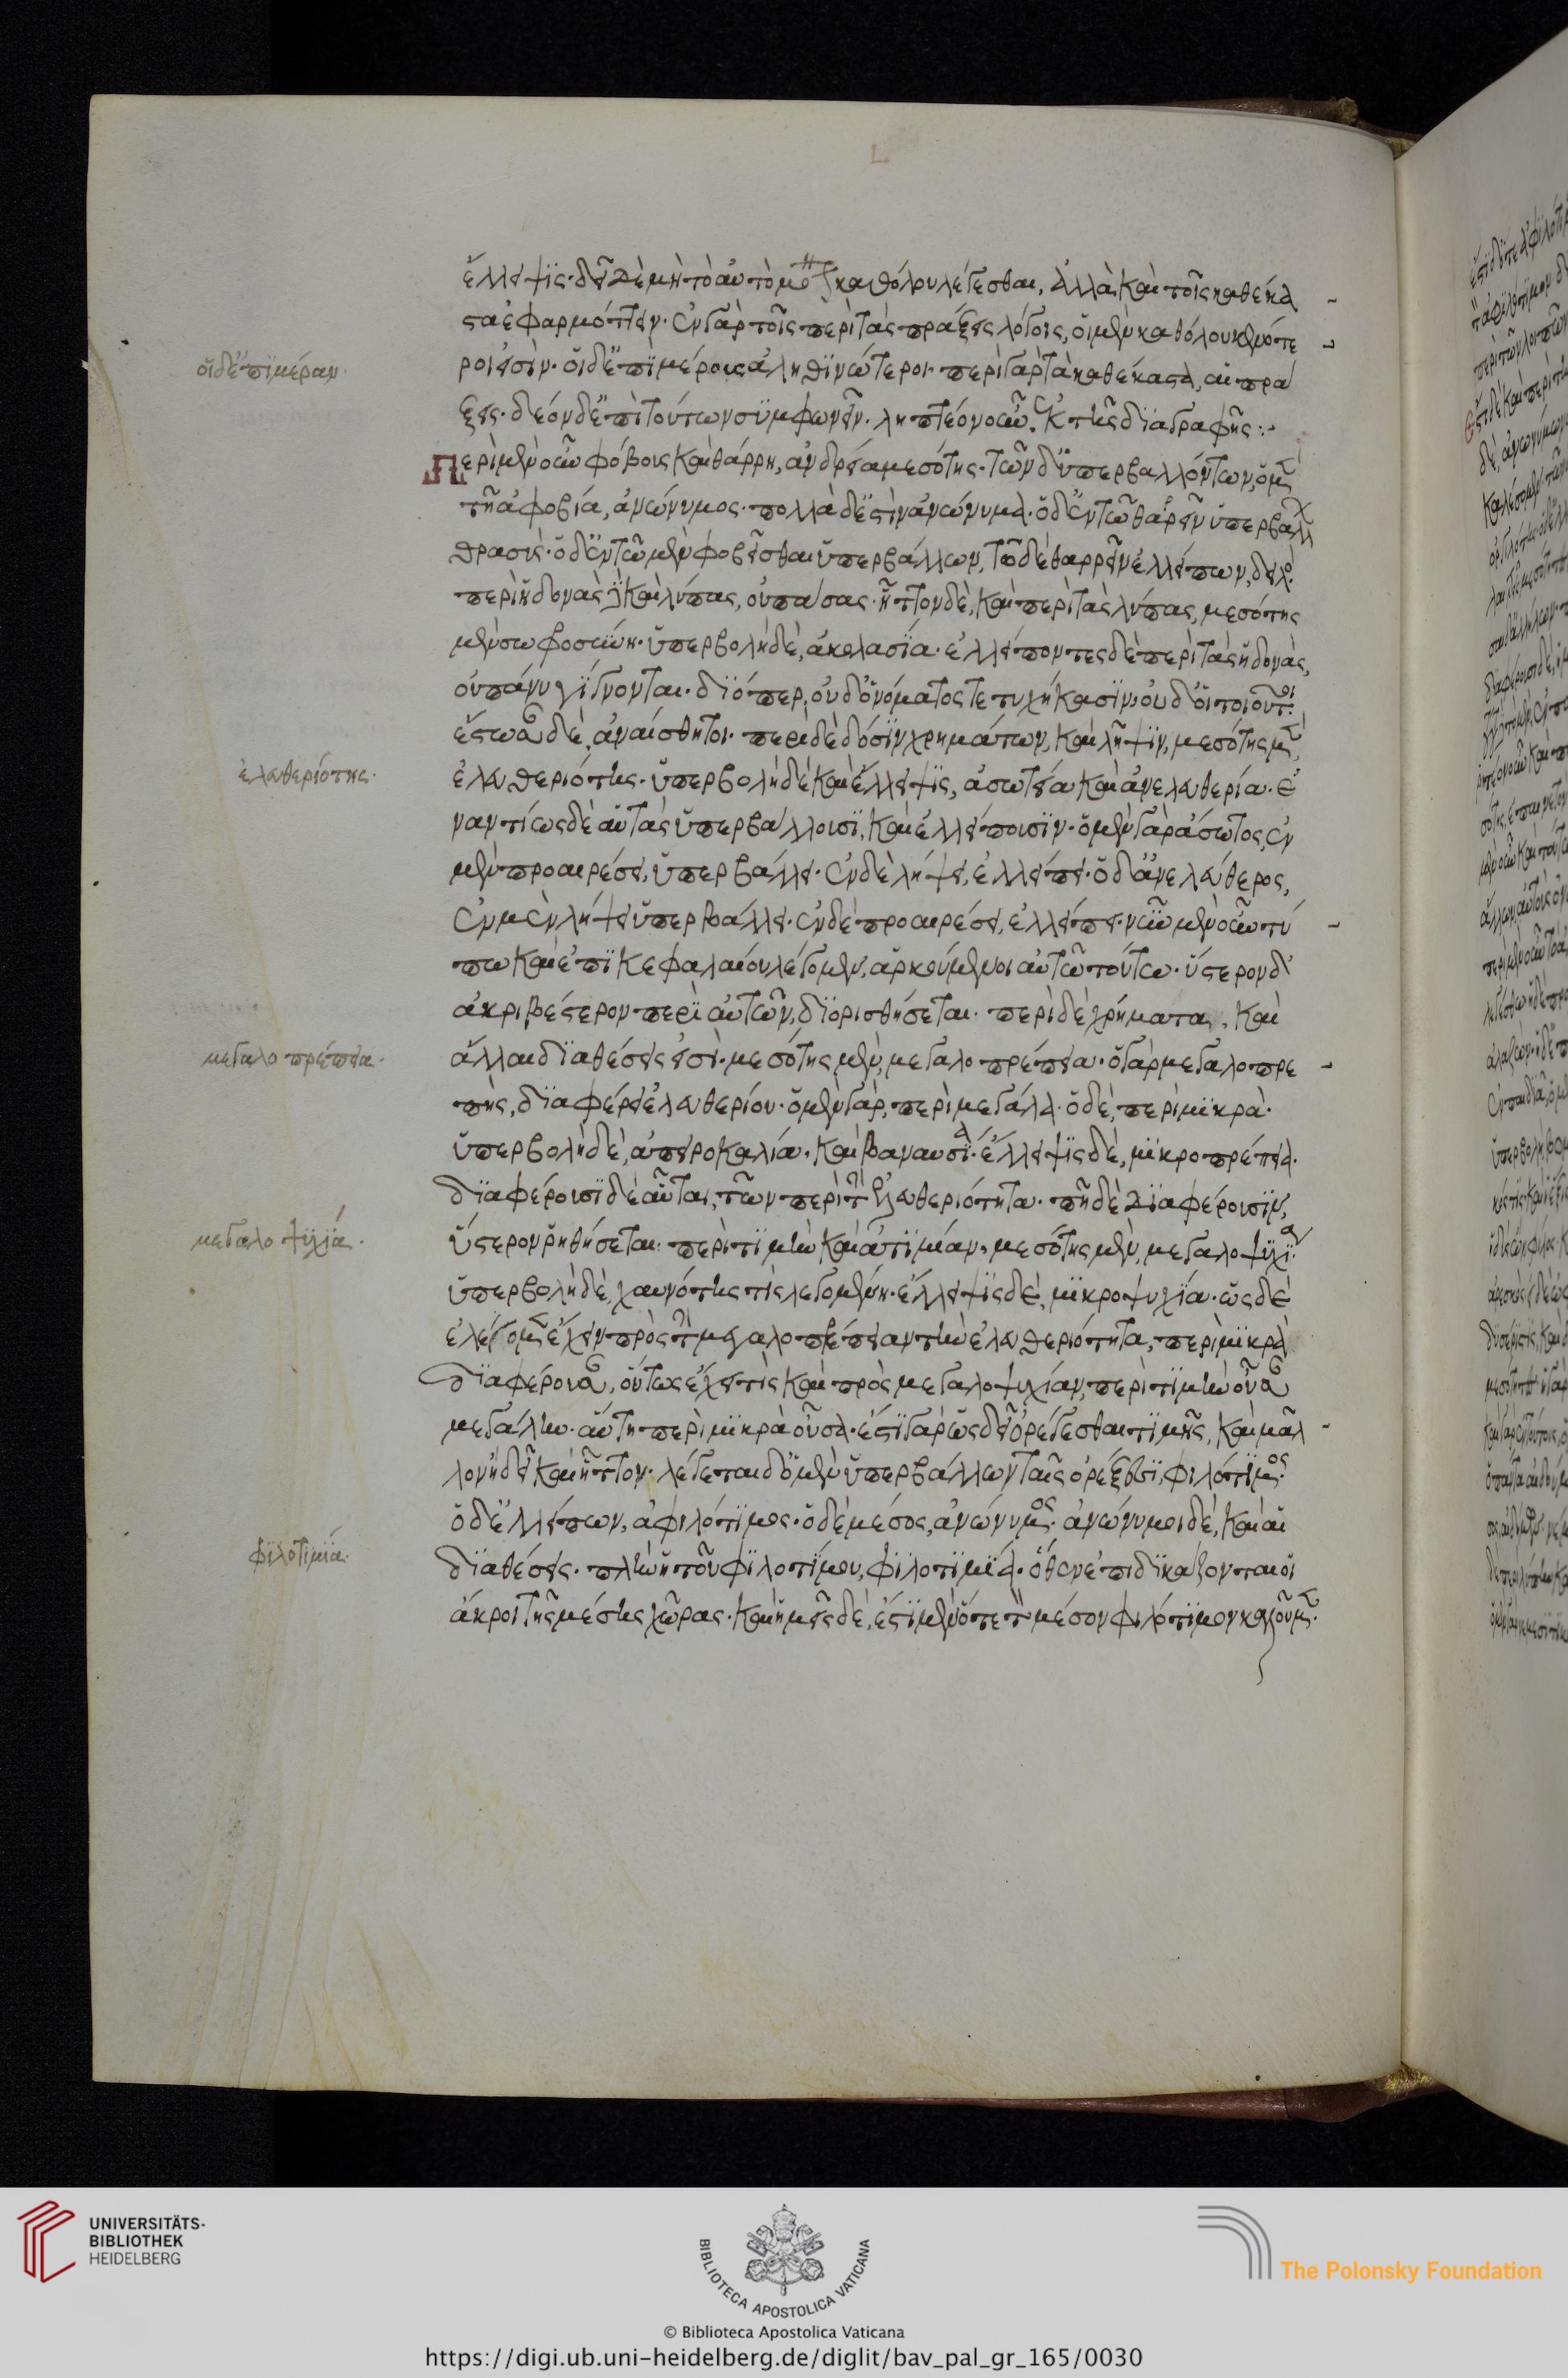 ἔλλειψις· δεῖ δὲ μὴ τὸ αὐτὸ μό καθόλου λέγεσθαι, ἀλλὰ καὶ τοῖς καθέκα
στα ἐφαρμόττειν· ἐν γὰρ τοῖς περὶ τὰς πράξεις λόγοις, οἱ μὲν καθόλου κενώτε
ροι εἰσὶν· οἱ δ' ἐπὶ μέρους ἀληθινώτεροι· περὶ γὰρ τὰ καθέκαστα, αἱ πρά
οἱ δ' ἐπὶ μέραν·
ξεις· δέον δ' ἐπὶ τούτων συμφωνεῖν· ληπτέον οὖν ἐκ τῆς διαγραφῆς:·
Περὶ μὲν οὖν φόβους καὶ θάρρη, ἀνδρεία μεσότης· τῶν δ' ὑπερβαλλόντων, ὁ μὲν
τῇ ἀφοβίᾳ, ἀνώνυμος· πολλὰ δ' ἐστὶν ἀνώνυμα· ὁ δ' ἐν τῷ θαρρεῖν ὑπερβαλλ
θρασὺς· ὁ δ' ἐν τῷ μὲν φοβεῖσθαι ὑπερβάλλων, τῷ δὲ θαρρεῖν ἐλλείπων, δειλὸ·
περὶ ἡδονὰς καὶ λύπας, οὐ πάσας· ἧττον δὲ, καὶ περὶ τὰς λύπας, μεσότης
μὲν σωφροσύνη· ὑπερβολὴ δὲ, ἀκολασία· ἐλλείποντες δὲ περὶ τὰς ἡδονὰς,
οὐ πάνυ γίγνονται· διόπερ, οὐδ' ὀνόματος τετυχήκασιν· οὐδ' οἱ τοιοῦτοι·
ἔστωσαν δὲ, ἀναίσθητοι· περὶ δὲ δόσιν χρημάτων, καὶ λῆψιν, μεσότης μὲν
ἐλευθεριότης·
ἐλευθεριότης· ὑπερβολὴ δὲ καὶ ἔλλειψις, ἀσωτεία καὶ ἀνελευθερία· ἐ
ναντίως δὲ αὐταῖς ὑπερβάλλουσι, καὶ ἐλλείπουσιν· ὁ μὲν γὰρ ἄσωτος, ἐν
μὲν προαιρέσει, ὑπερβάλλει· ἐν δὲ λήψει, ἐλλείπει· ὁ δ' ἀνελεύθερος,
ἐν μὲν λήψει ὑπερβάλλει· ἐν δὲ προαιρέσει, ἐλλείπει· νῦν μὲν οὖν τύ
πῳ καὶ ἐπὶ κεφαλαίου λέγομεν, ἀρκούμενοι αὐτῷ τούτῳ· ὕστερον δ'
ἀκριβέστερον περὶ αὐτῶν, διορισθήσεται· περὶ δὲ χρήματα, καὶ
μεγαλοπρέπεια·
ἄλλαι διαθέσεις εἰσὶ· μεσότης μὲν, μεγαλοπρέπεια· ὁ γὰρ μεγαλοπρε
πὴς, διαφέρει ἐλευθερίου· ὁ μὲν γὰρ, περὶ μεγάλα· ὁ δὲ, περὶ μικρά·
ὑπερβολὴ δὲ, ἀπειροκαλία· καὶ βαναυσία· ἔλλειψις δὲ, μικροπρέπεια·
διαφέρουσι δὲ αὗται, τῶν περὶ τὴν ἐλευθεριότητα· πῆ δὲ διαφέρουσιν,
μεγαλοψυχία·
ὕστερον ῥηθήσεται· περὶ τιμὴν καὶ ἀτιμίαν, μεσότης μὲν, μεγαλοψυχία·
ὑπερβολὴ δὲ, χαυνότης τὶς λεγομένη· ἔλλειψις δὲ, μικροψυχία· ὡς δὲ
ἐλέγομεν ἔχειν πρὸς τὴν μεγαλοπρέπειαν τὴν ἐλευθεριότητα, περὶ μικρὰ
διαφέρουσαν, οὕτως ἔχει τὶς καὶ πρὸς μεγαλοψυχίαν, περὶ τιμὴν οὖσαν
μεγάλην· αὕτη περὶ μικρὰ οὖσα· ἔστι γὰρ ὡς δεῖ ὀρέγεσθαι τιμῆς, καὶ μᾶλ
λον ἢ δεῖ καὶ ἧττον· λέγεται δ' ὁ μὲν ὑπερβάλλων ταῖς ὀρέξεσι, φιλότιμος·
ὁ δ' ἐλλείπων, ἀφιλότιμος· ὁ δὲ μέσος, ἀνώνυμος· ἀνώνυμοι δὲ, καὶ αἱ
φιλοτιμία·
διαθέσεις· πλὴν ἡ τοῦ φιλοτίμου, φιλοτιμία· ὅθεν ἐπιδικάζονται οἱ
ἄκροι τῆς μέσης χώρας· καὶ ἡμεῖς δὲ, ἔστι μὲν ὅτε τὸν μέσον φιλότιμον καλοῦμεν·
UNIVERSITÄTS-
BIBLIOTHEK
HEIDELBERG
BIBLIOTECA APOSTOLICA VATICANA
© Biblioteca Apostolica Vaticana
The Polonsky Foundation
https://digi.ub.uni-heidelberg.de/diglit/bav_pal_gr_165/0030